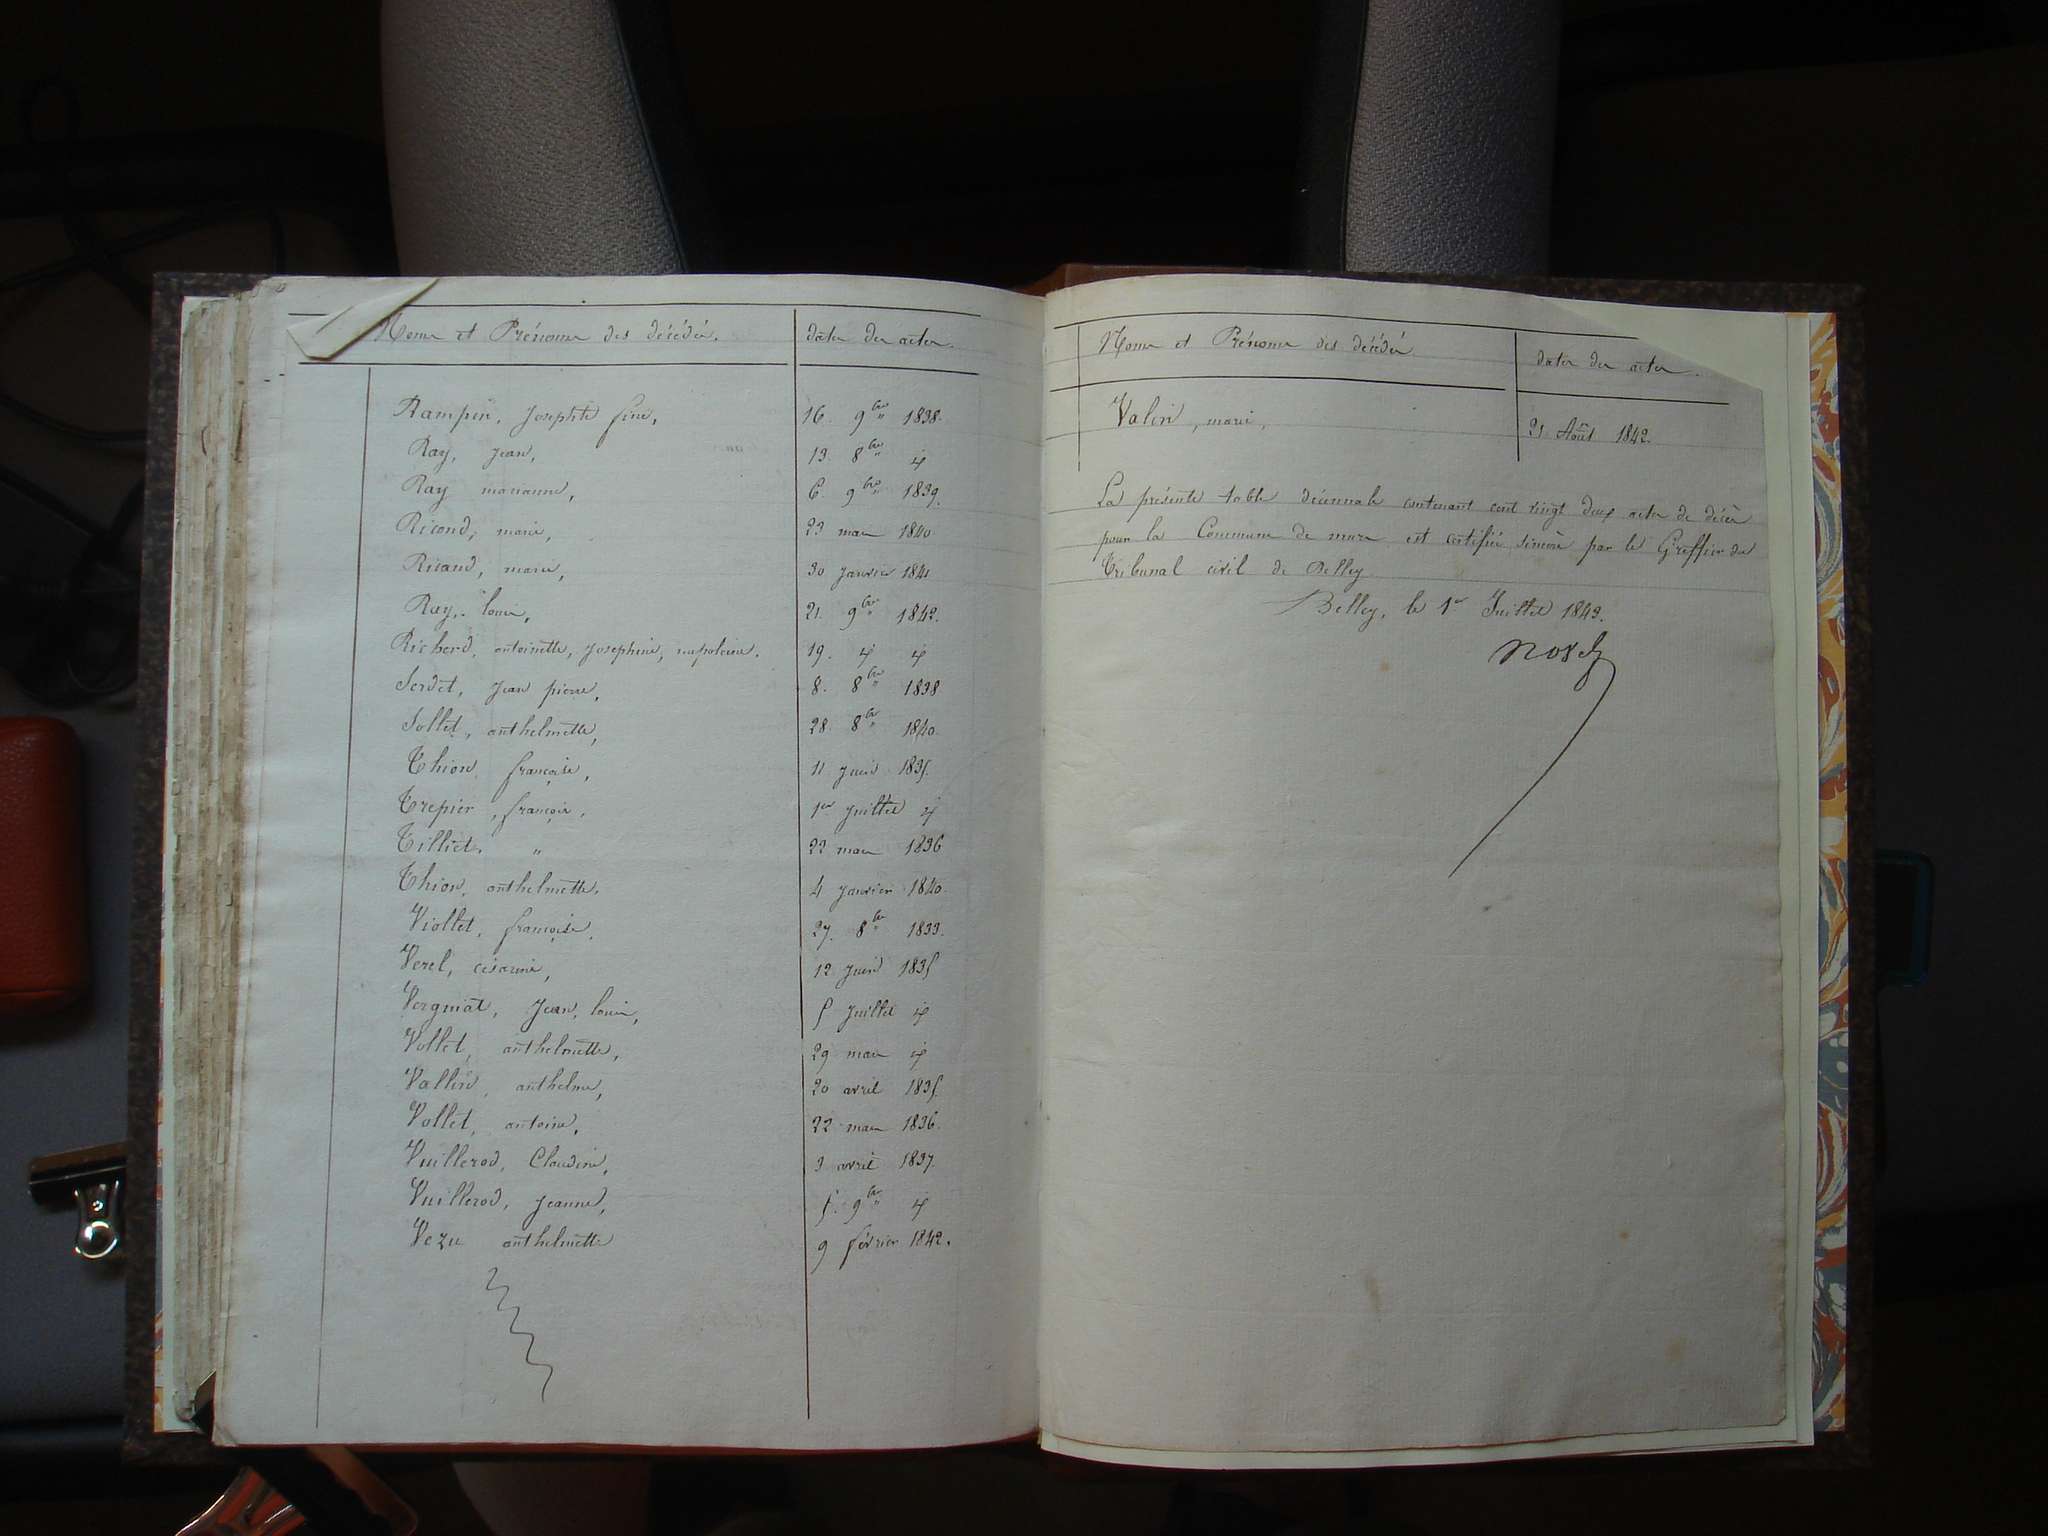 Noms et Prénoms des décédés. dates des actes.
Rampin, Josephte fine, 16. 9bre 1838.
Ray, Jean, 13. 8bre id
Ray marianne, 6. 9bre 1839.
Ricond, marie, 23 mars 1840
Ricand, marie, 30 Janvier 1841
Ray, louis, 21. 9bre 1842.
Richerd, antoinette, Josephine, napoleine. 19. id id
Serdet, Jean pierre, 8. 8bre 1838
Sollet, anthelmette, 28. 8bre 1840.
Thion françoise, 11 Juin 1835.
Trepier, françois, 1er Juillet id
Tilliet, " 22 mars 1836
Thion, anthelmette. 4 Janvier 1840
Viollet, françoise. 27. 8bre 1833.
Verel, césarine, 12 Juin 1835
Vergniat, Jean, louis, 5 Juillet id
Vollet, anthelmette, 29 mars id
Vallin, anthelme, 20 avril 1835.
Vollet, antoine, 22 mars 1836.
Vuillerod, Claudine, 3 avril 1837.
Vuillerod, Jeanne, 5. 9bre id
Vezu anthelmette 9 février 1842.
Noms et Prénoms des décédés. dates des actes.
Valin, marie, 21 Août 1842.
La présente table décennale contenant cent vingt deux actes de décès
pour la Commune de murs est certifiée sincère par le Greffier du
Tribunal civil de Belley
Belley, le 1er Juillet 1843.